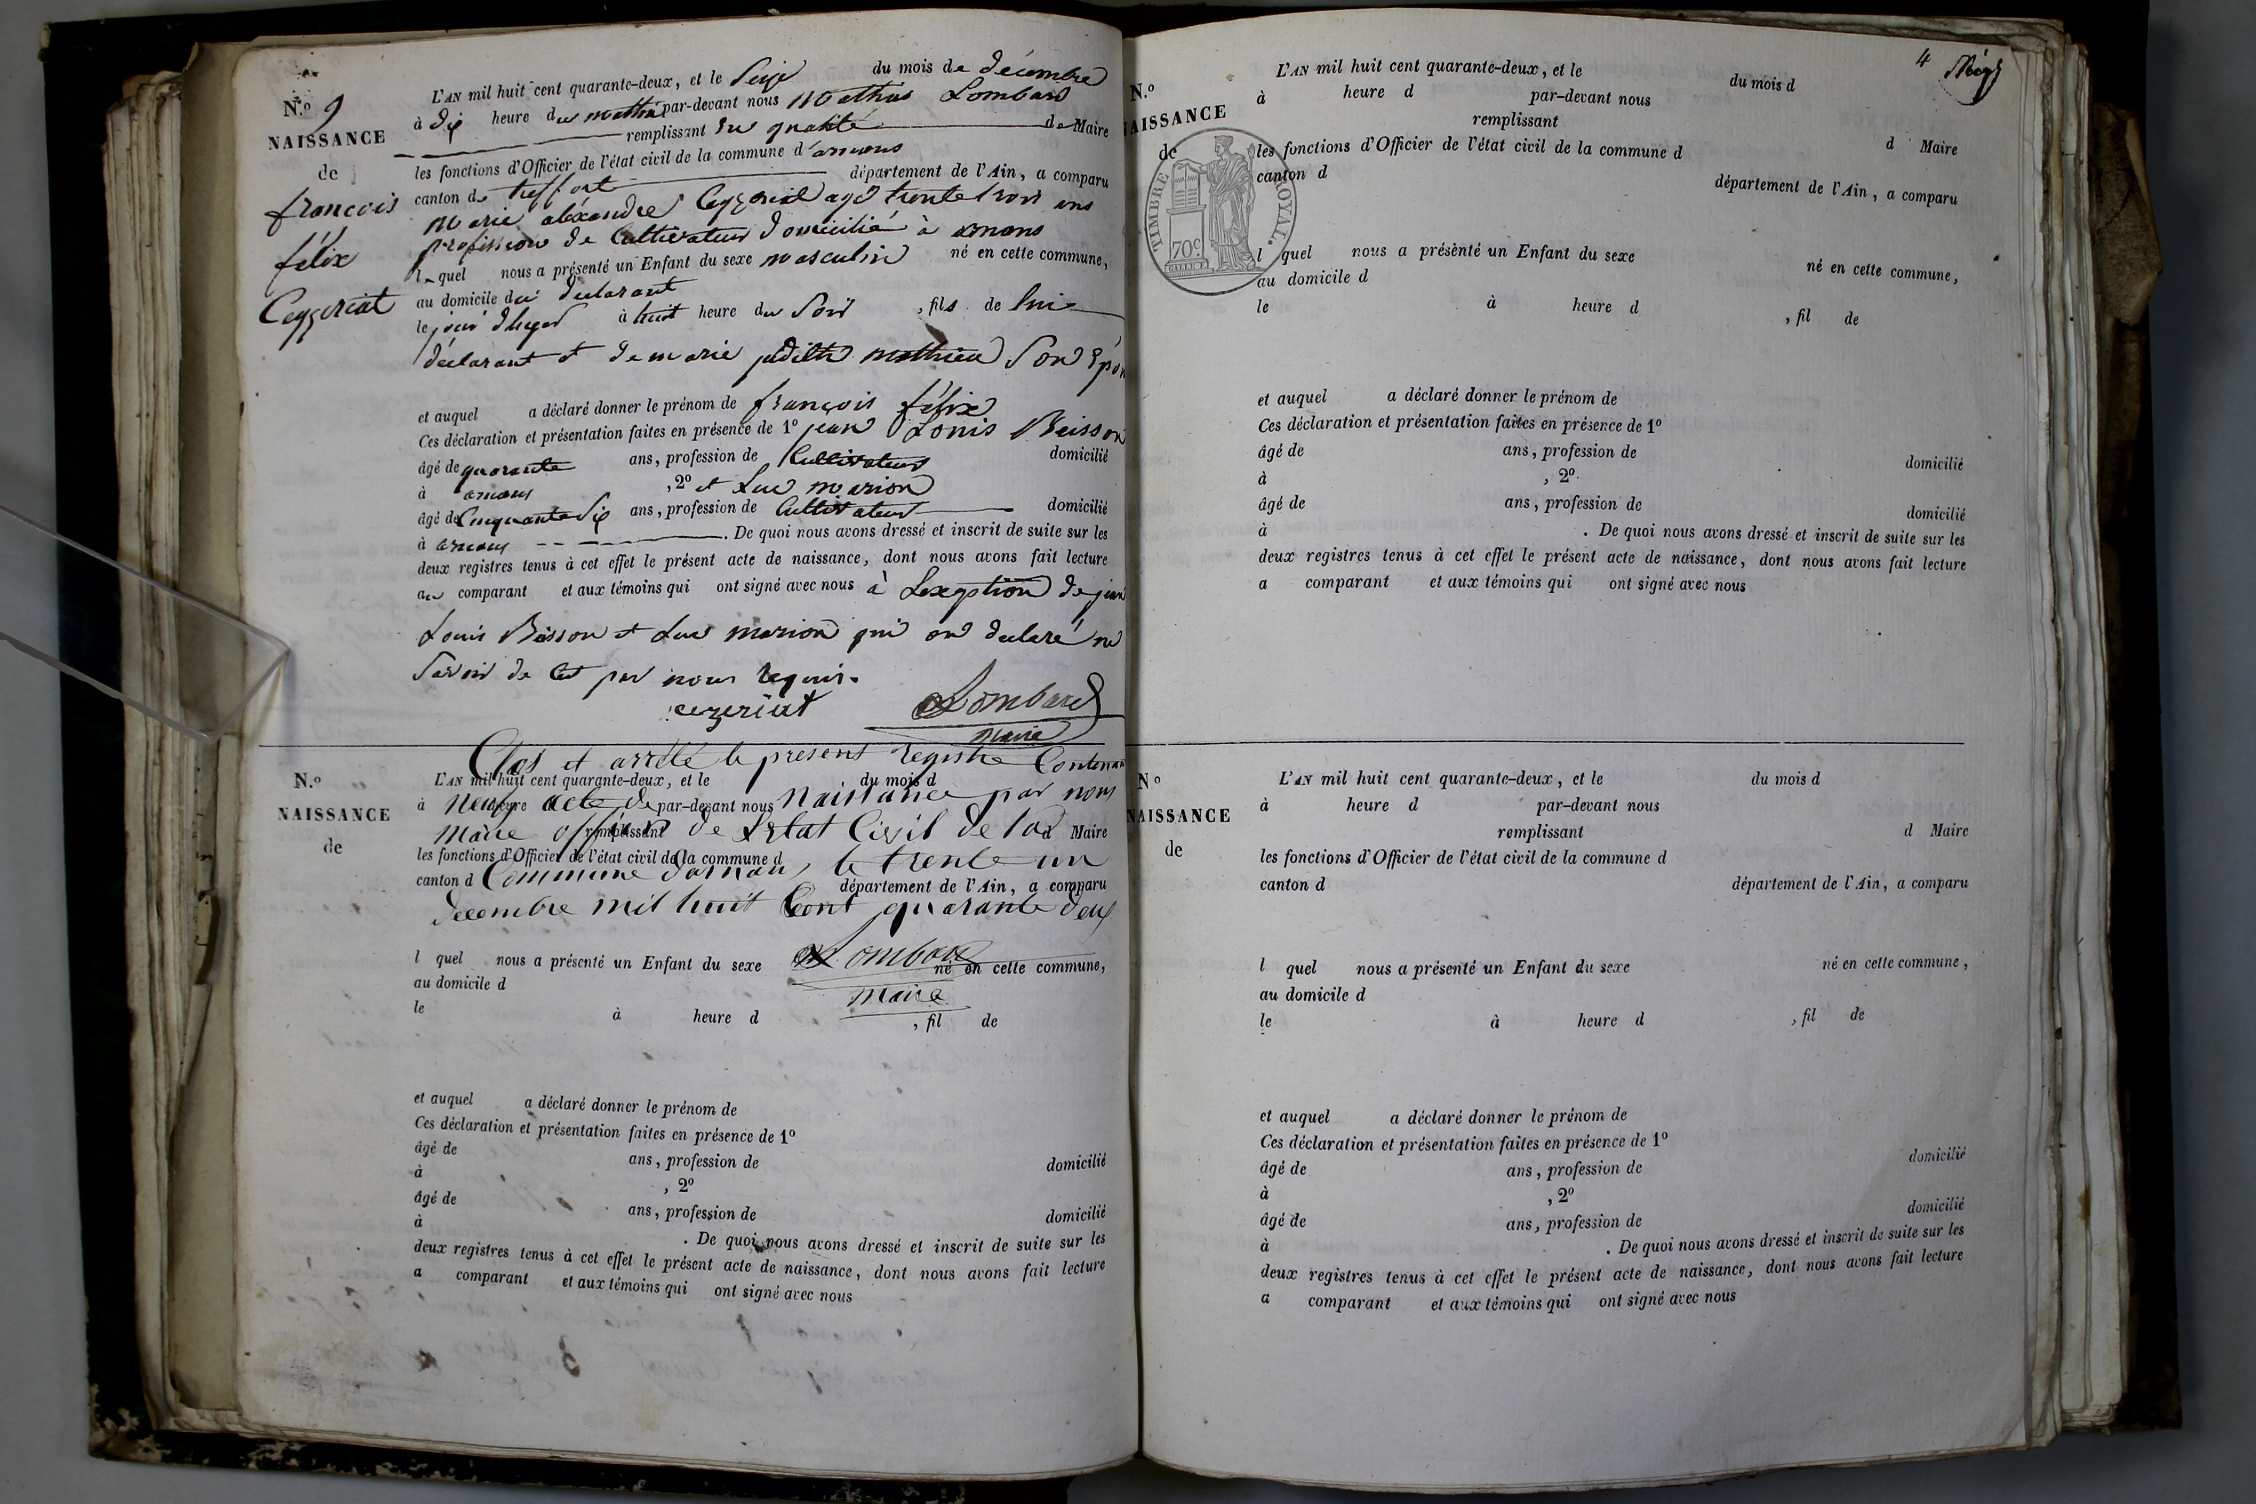 N.º 9
NAISSANCE
de
françois
félix
Ceyzeriat
L'AN mil huit cent quarante-deux, et le Seize du mois de décembre
à dix heure du matin par-devant nous Mathias Lombard
remplissant en qualité de Maire
les fonctions d'Officier de l'état civil de la commune d'arnans
canton de treffort département de l'Ain, a comparu
Marie aléxandre Ceyzeriat agé trente trois ans
profession de Cultivateur domicilié à arnans
lequel nous a présenté un Enfant du sexe masculin né en cette commune,
au domicile du déclarant
le jour d'hyer à huit heure du Soir, fils de lui
déclarant et de marie judith mathieu Son épou
et auquel a déclaré donner le prénom de françois félix
Ces déclaration et présentation faites en présence de 1º jean Louis Beisson
âgé de quarante ans, profession de Cultivateur domicilié
à arnans, 2º et Luc marion
âgé de Cinquante Six ans, profession de Cultivateur domicilié
à arnans. De quoi nous avons dressé et inscrit de suite sur les
deux registres tenus à cet effet le présent acte de naissance, dont nous avons fait lecture
au comparant et aux témoins qui ont signé avec nous à Lexeption de jean
Louis Beisson et Luc marion qui on déclaré ne
Savoir de Cet par nous requis.
cezeriat Lombard
Maire
Clos et arrêté le présent registre Contenant
neuf acte de naissance par nous
Maire officier de L'état Civil de la
Commune d'arnans, le trente un
décembre mil huit Cent quarante deux
Lombard
Maire
N.º
NAISSANCE
de
L'AN mil huit cent quarante-deux, et le du mois d
à heure par-devant nous
remplissant d Maire
les fonctions d'Officier de l'état civil de la commune d
canton d département de l'Ain, a comparu
l quel nous a présenté un Enfant du sexe né en cette commune,
au domicile d
le à heure d, fil de
et auquel a déclaré donner le prénom de
Ces déclaration et présentation faites en présence de 1º
âgé de ans, profession de domicilié
à, 2º
âgé de ans, profession de domicilié
à. De quoi nous avons dressé et inscrit de suite sur les
deux registres tenus à cet effet le présent acte de naissance, dont nous avons fait lecture
a comparant et aux témoins qui ont signé avec nous
4
N.º
NAISSANCE
de
TIMBRE ROYAL.
70 c.
L'AN mil huit cent quarante-deux, et le du mois d
à heure d par-devant nous
remplissant d Maire
les fonctions d'Officier de l'état civil de la commune d
canton d département de l'Ain, a comparu
l quel nous a présenté un Enfant du sexe né en cette commune,
au domicile d
le à heure d, fil de
et auquel a déclaré donner le prénom de
Ces déclaration et présentation faites en présence de 1º
âgé de ans, profession de domicilié
à, 2º
âgé de ans, profession de domicilié
à. De quoi nous avons dressé et inscrit de suite sur les
deux registres tenus à cet effet le présent acte de naissance, dont nous avons fait lecture
a comparant et aux témoins qui ont signé avec nous
Nº
NAISSANCE
de
L'AN mil huit cent quarante-deux, et le du mois d
à heure d par-devant nous
remplissant d Maire
les fonctions d'Officier de l'état civil de la commune d
canton d département de l'Ain, a comparu
l quel nous a présenté un Enfant du sexe né en cette commune,
au domicile d
le à heure d, fil de
et auquel a déclaré donner le prénom de
Ces déclaration et présentation faites en présence de 1º
âgé de ans, profession de domicilié
à, 2º
âgé de ans, profession de domicilié
à. De quoi nous avons dressé et inscrit de suite sur les
deux registres tenus à cet effet le présent acte de naissance, dont nous avons fait lecture
a comparant et aux témoins qui ont signé avec nous